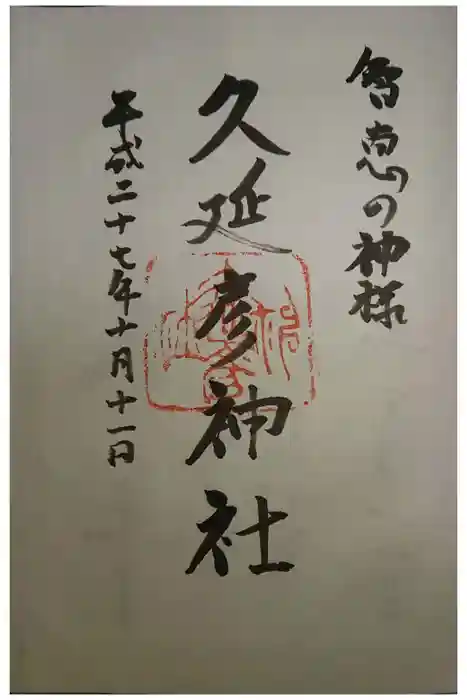 智恵の神様
久延彦神社
平成二十七年十月十一日